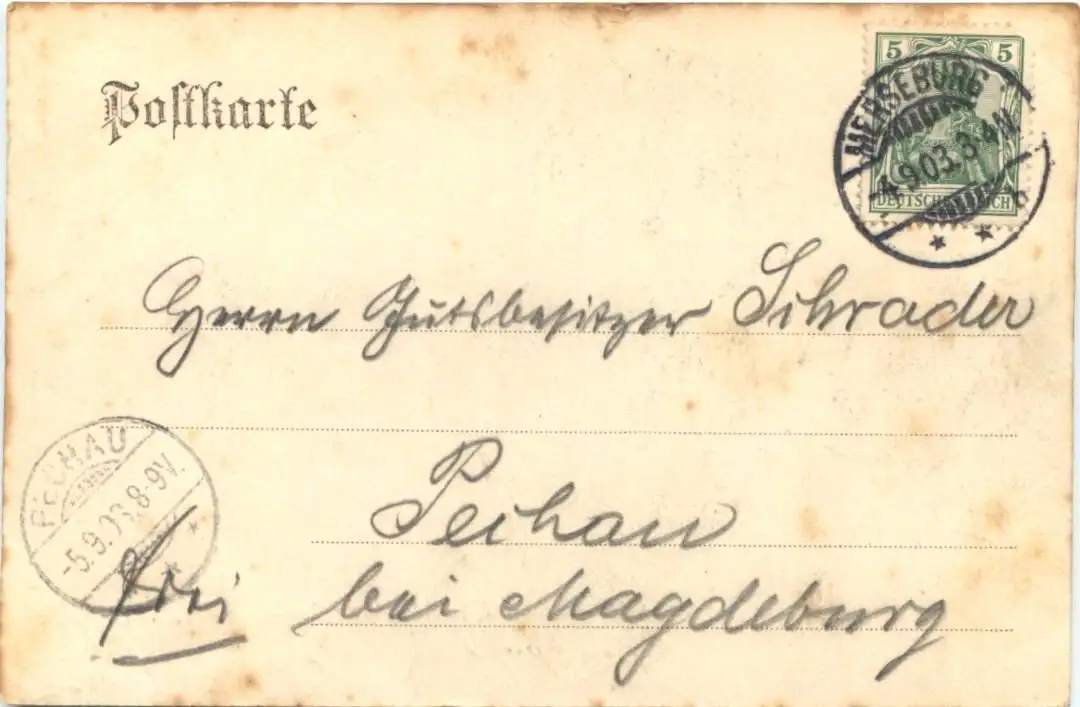 Postkarte
5 5
MERSEBURG
-4.9.03. 3-4N.
DEUTSCHES REICH
Herrn Gutsbesitzer Schrader
PECHAU
-5.9.03.8-9V.
Pechau
frei
bei Magdeburg